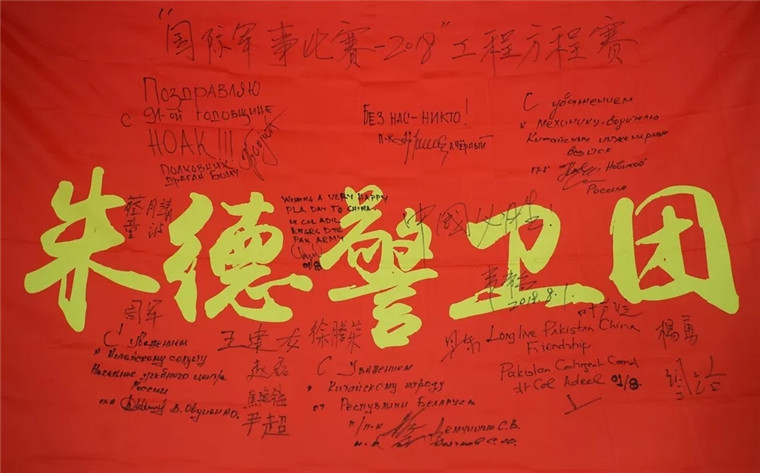 "国际军事比赛-2018"工程方程赛
ПОЗДРАВЛЯЮ
С 91-ОЙ ГОДОВЩИНЕ
НОАК!!!
ПОЛКОВНИК
БЕЗ НАС-НИКТО!
П-К
С уважением
к механику-водителю
Китайских инженерных
войск
п-к Новиков
Россия
WISHING A VERY HAPPY
PLA DAY TO CHINA
LT COL ADIL
ENGRS DTE
PAK ARMY
01/8
中国必胜!
2018.8.1
朱德警卫团
司军
С Уважением
к Китайскому солдату
Начальник учебного центра
России
王建友
赵磊
尹超
徐腾荣
С Уважением
к Китайскому народу
от Республики Беларусь
п/п-к Демчишин С.В.
Long live Pakistan China
Friendship
Pakistan Contingent Comd
Lt Col Adeel 01/8
杨勇